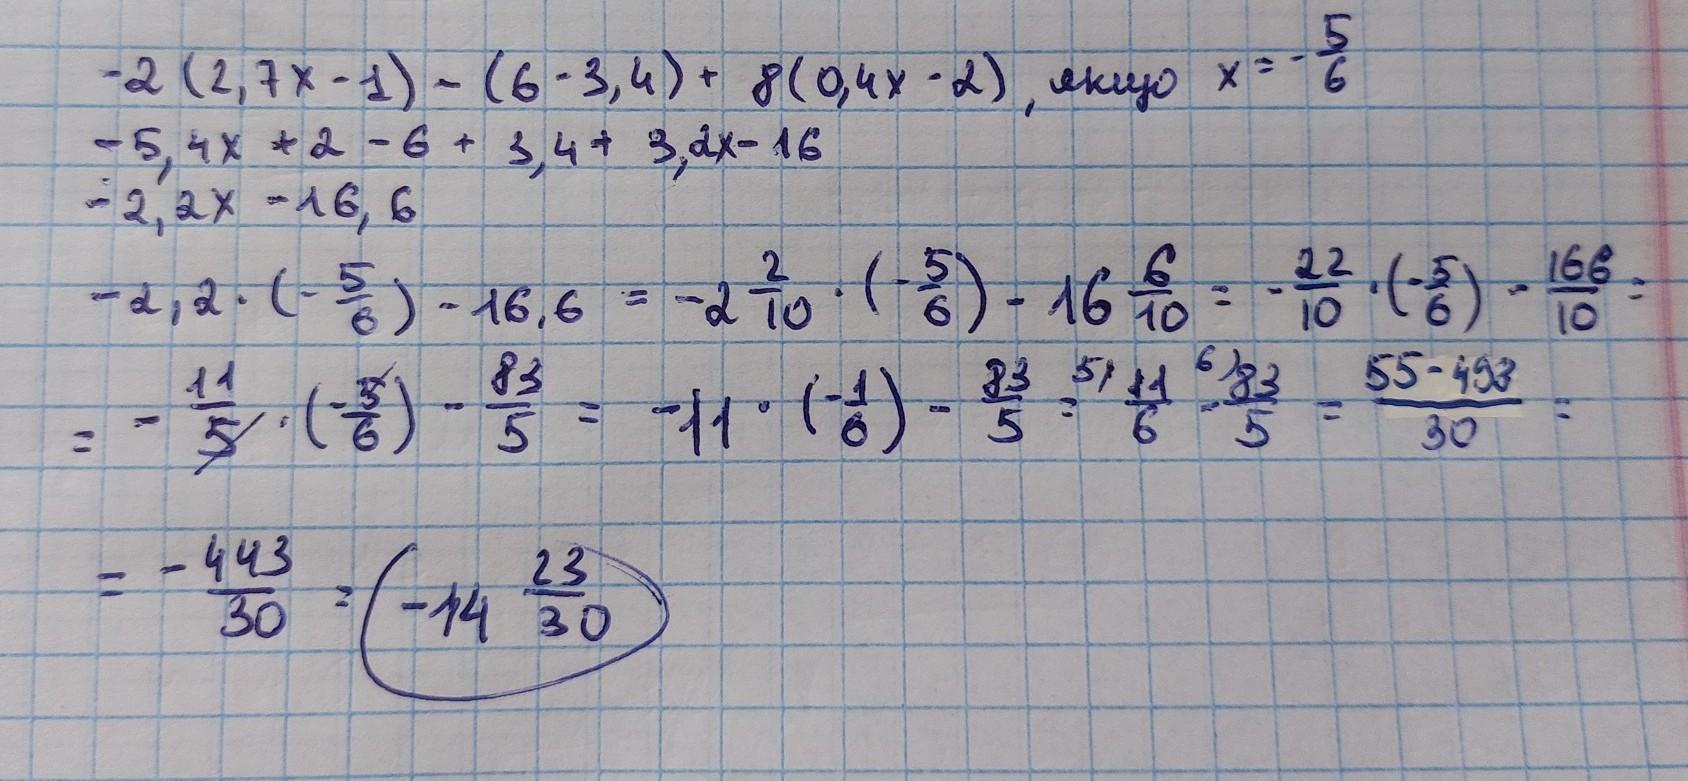 -2(2,7x-1)-(6-3,4)+8(0,4x-2), якщо x=-5/6
-5,4x+2-6+3,4+3,2x-16
-2,2x-16,6
-2,2·(-5/6)-16,6=-2 2/10·(-5/6)-16 6/10=-22/10·(-5/6)-166/10=
=-11/5·(-5/6)-83/5=-11·(-1/6)-83/5= 5) 11/6- 6) 83/5=55-498/30=
=-443/30=-14 23/30